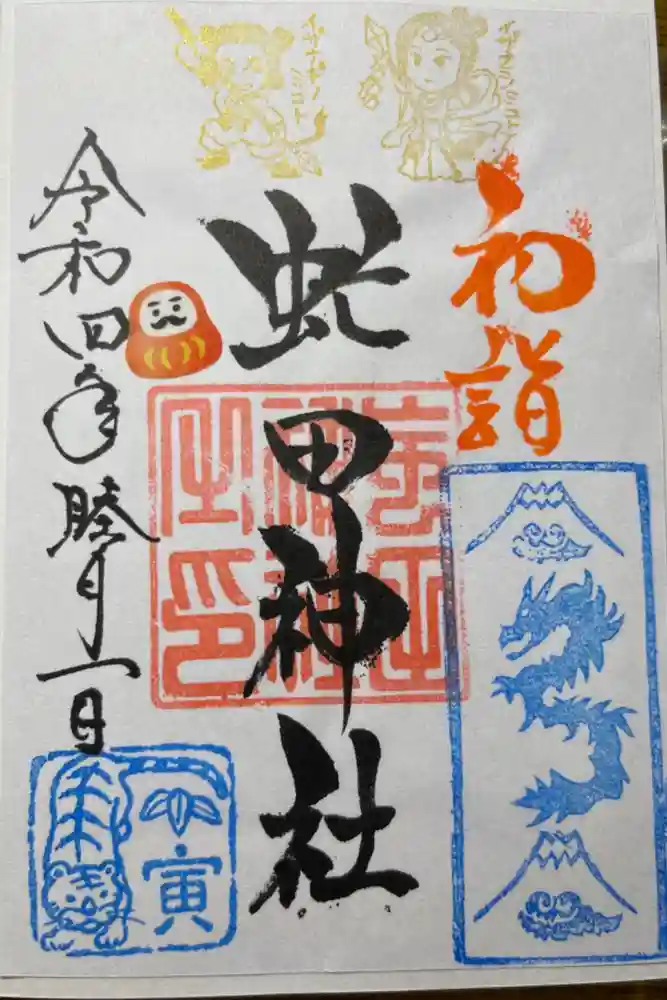 イザナギノ
ミコト
イザナミノミコト
初詣
虻田神社
令和四年睦月一日
寅